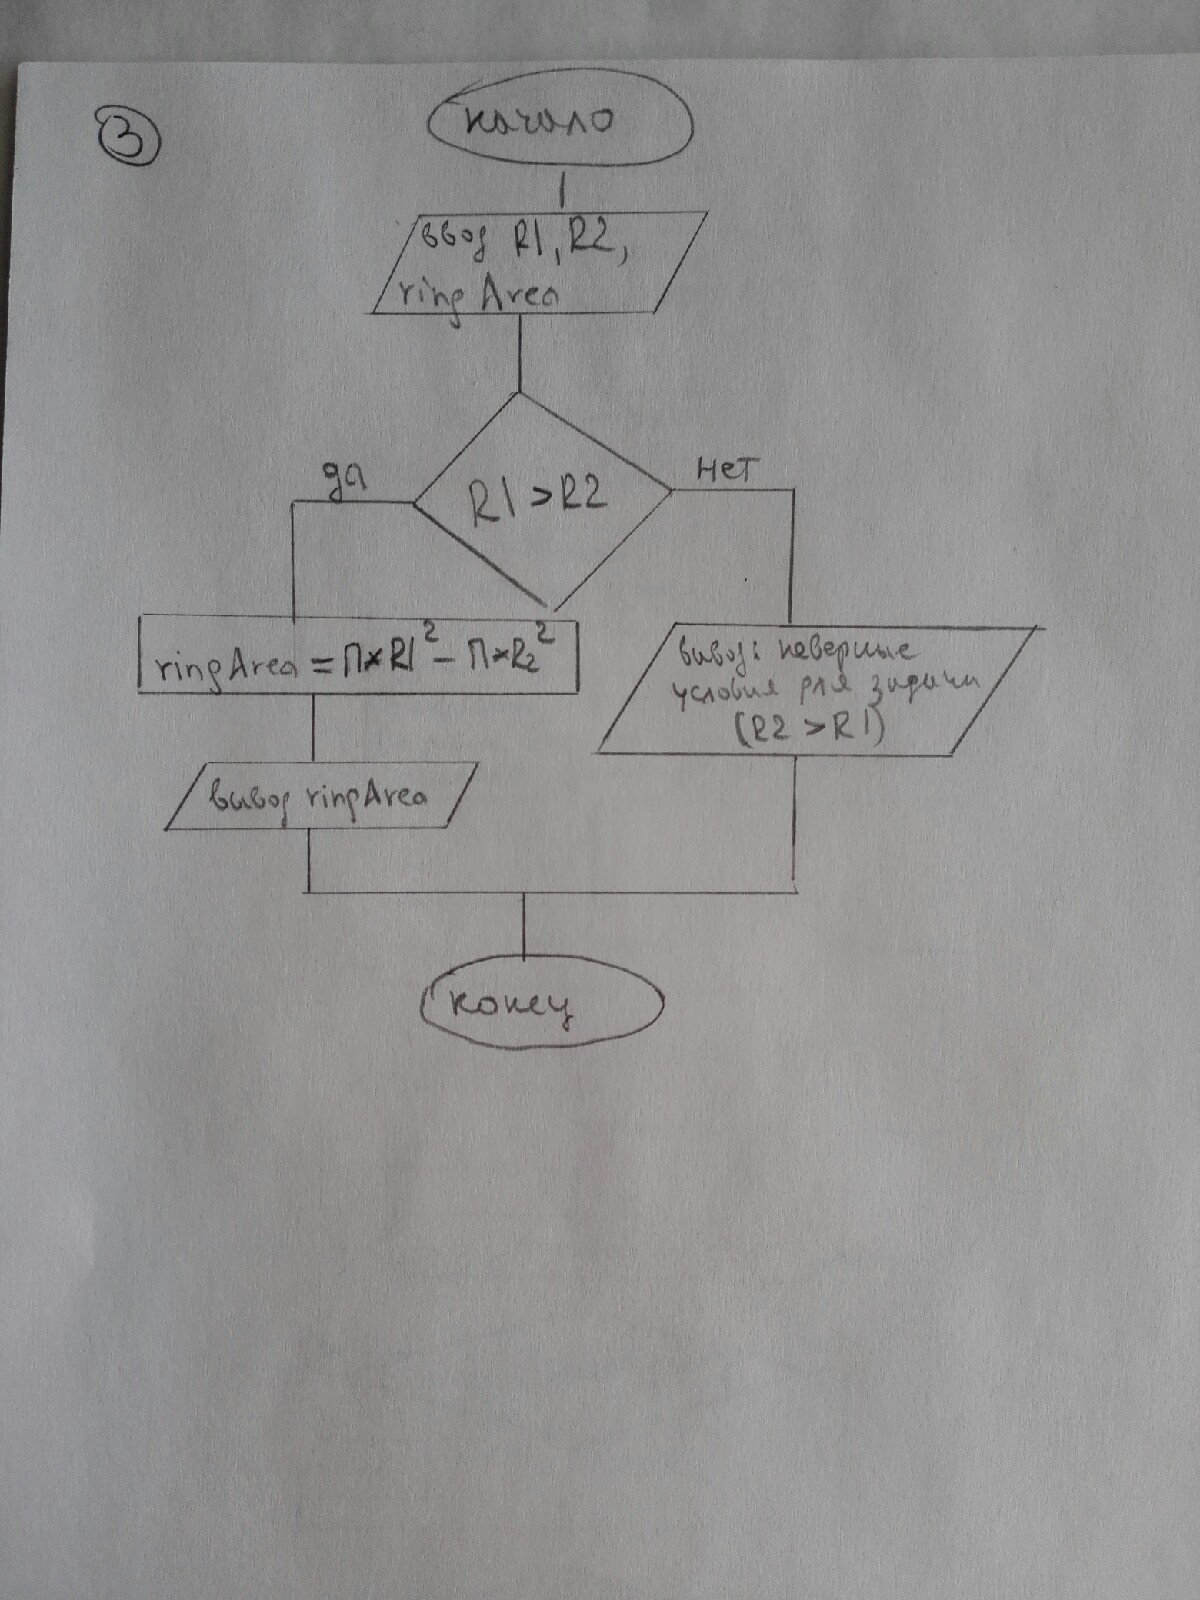 3
начало
ввод R1, R2,
ringArea
R1 > R2
да
нет
ringArea = П*R1² - П*R2²
вывод: неверные
условия для задачи
(R2 > R1)
вывод ringArea
конец